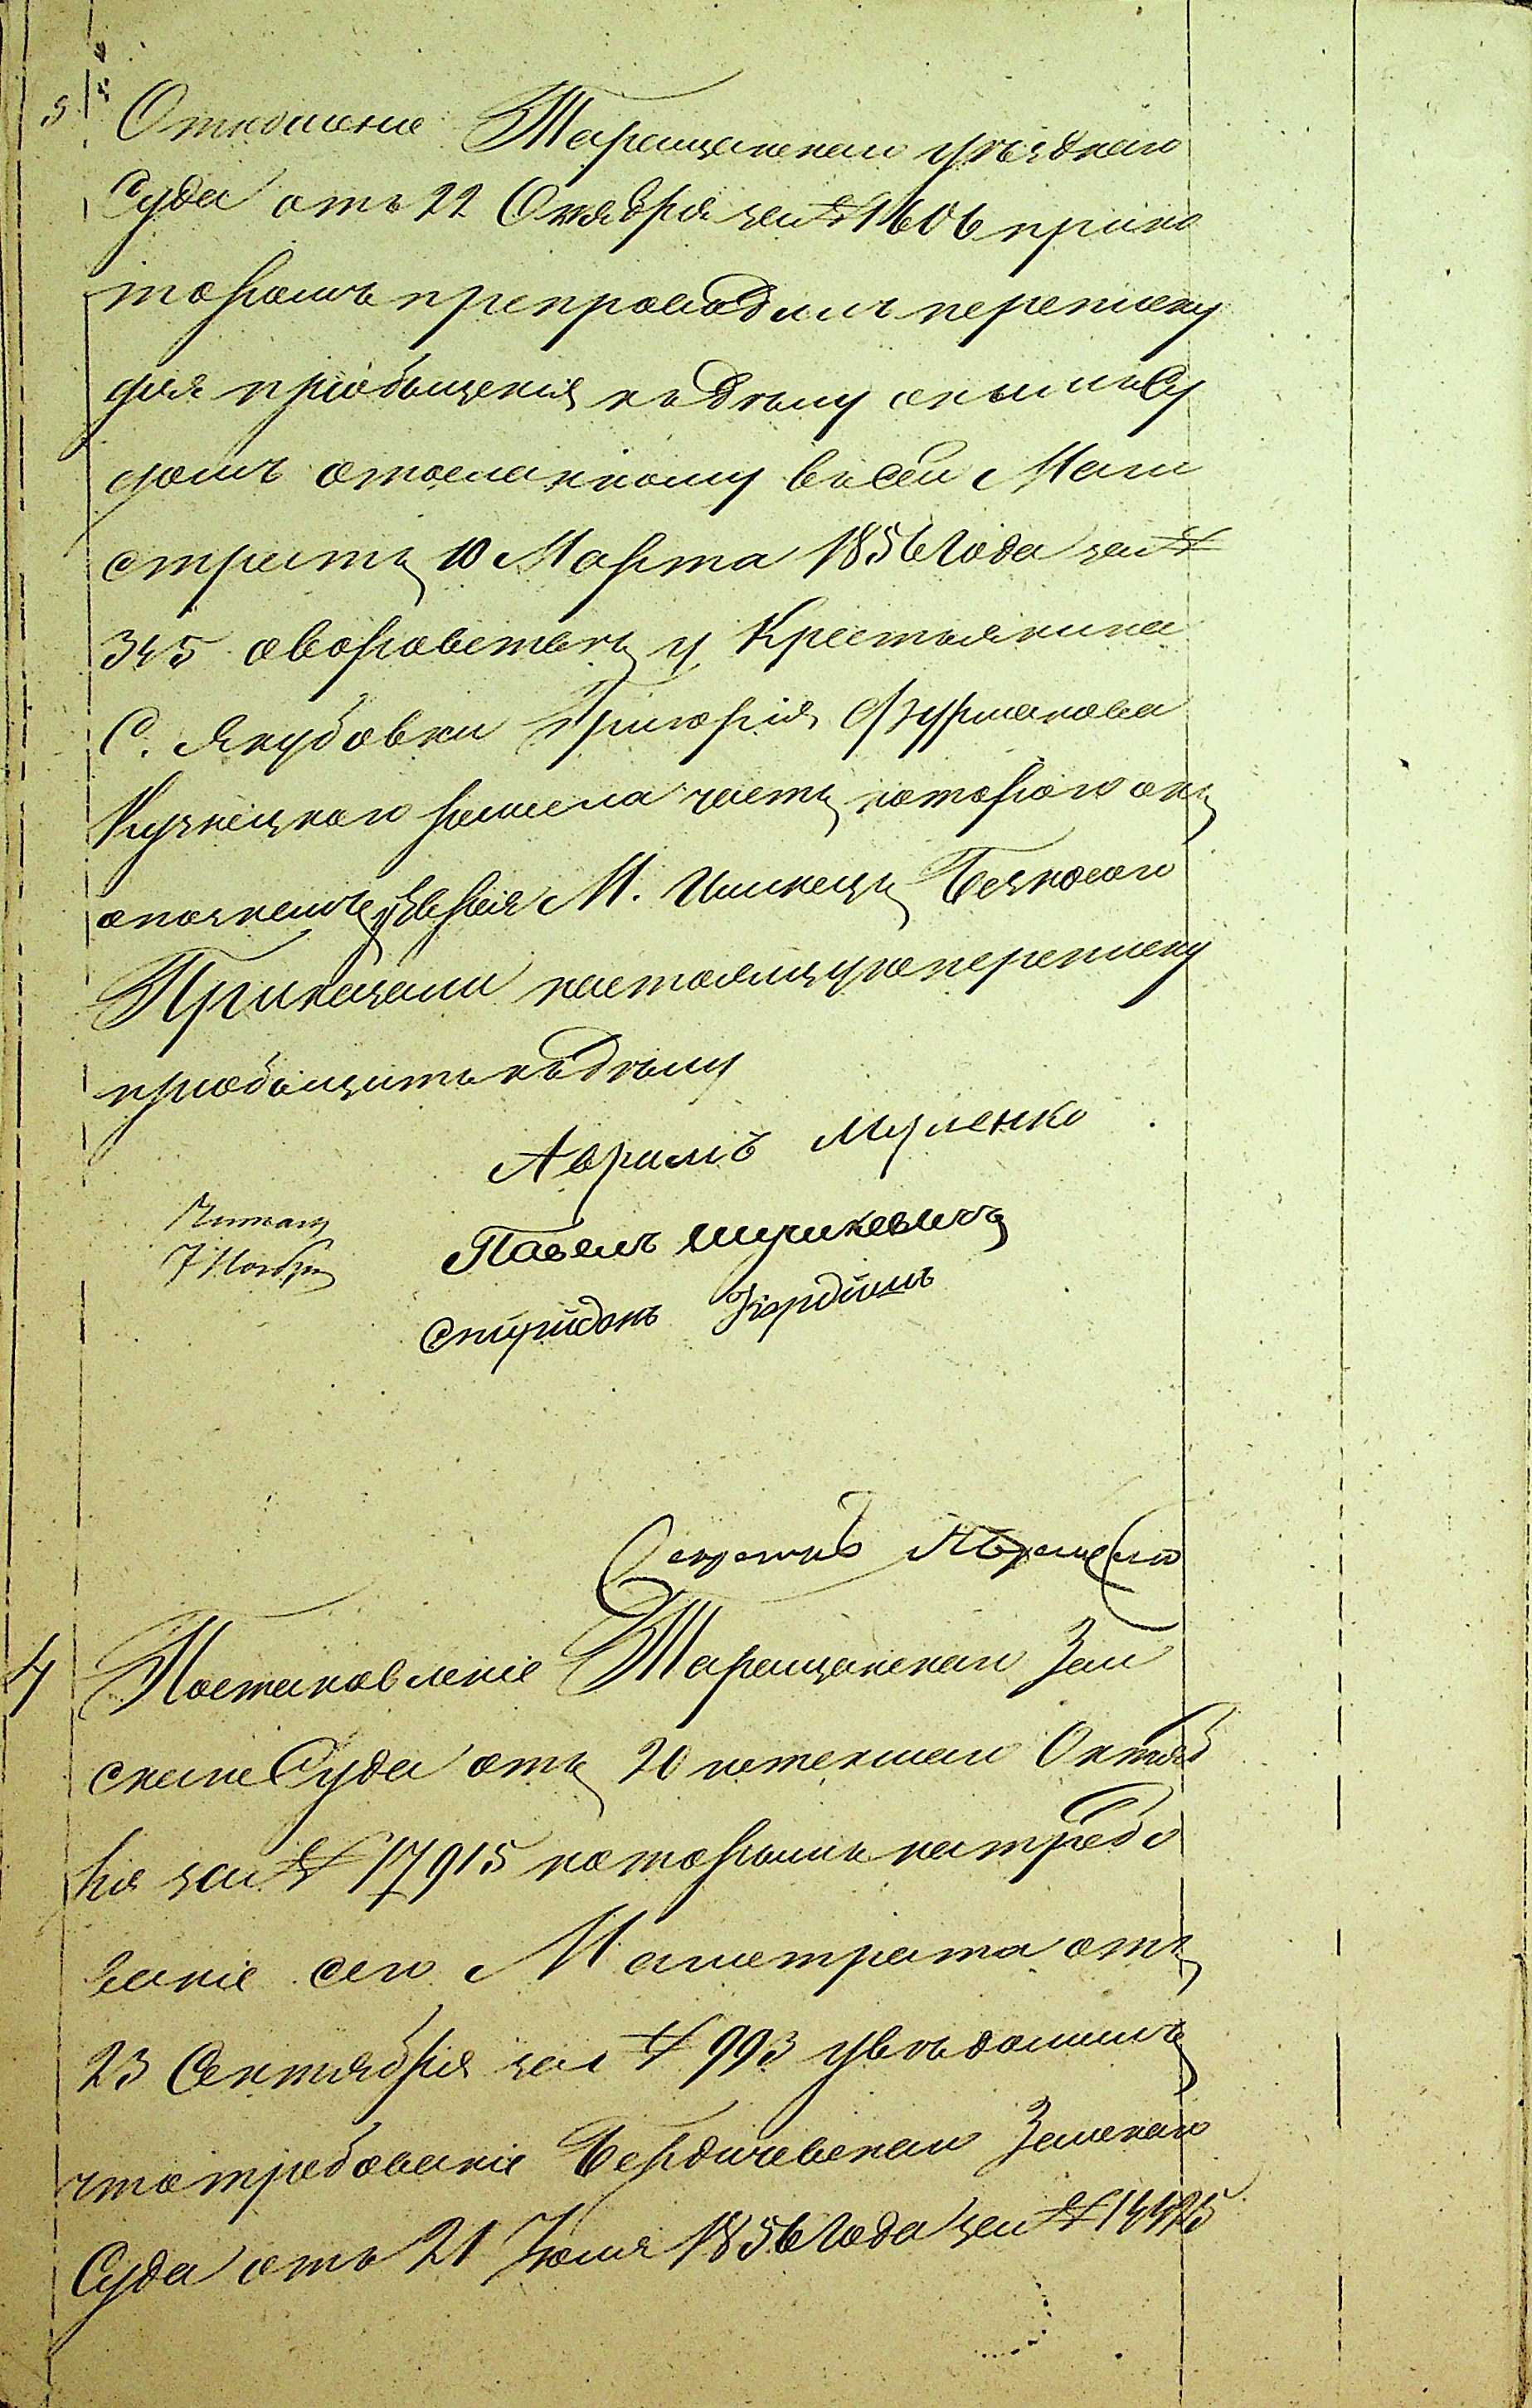 3
Отношение Таращанскаго уѣзднаго
Суда отъ 22 Октября за № 1606 при ко
торомъ препроводилъ переписку
для пріобщенія къ дѣлу онымъ Су
домъ отосланному въ сей Маги
стратъ 10 Марта 1856 года за №
345 о воровствѣ у Крестьянина
С. Якубовки Григорія Фурманова
Кузнецкаго часть котораго
опознанъ у Еврея М. Беякоого
Приказали настоящую переписку
пріобщить къ дѣлу
Авраамъ Муленко
Читалъ
7 Ноября
Павелъ
Спиридонъ
Секретарь
4 Постановленіе Таращанскаго Зем
скаго Суда отъ 20 истекшаго Октяб
ря за № 17915 которымъ на требо
ваніе сего Магистрата отъ
23 Сентября за № 993 увѣдомилъ
что требованіе Бердичевскаго Земскаго
Суда отъ 21 Іюля 1856 года за № 14425